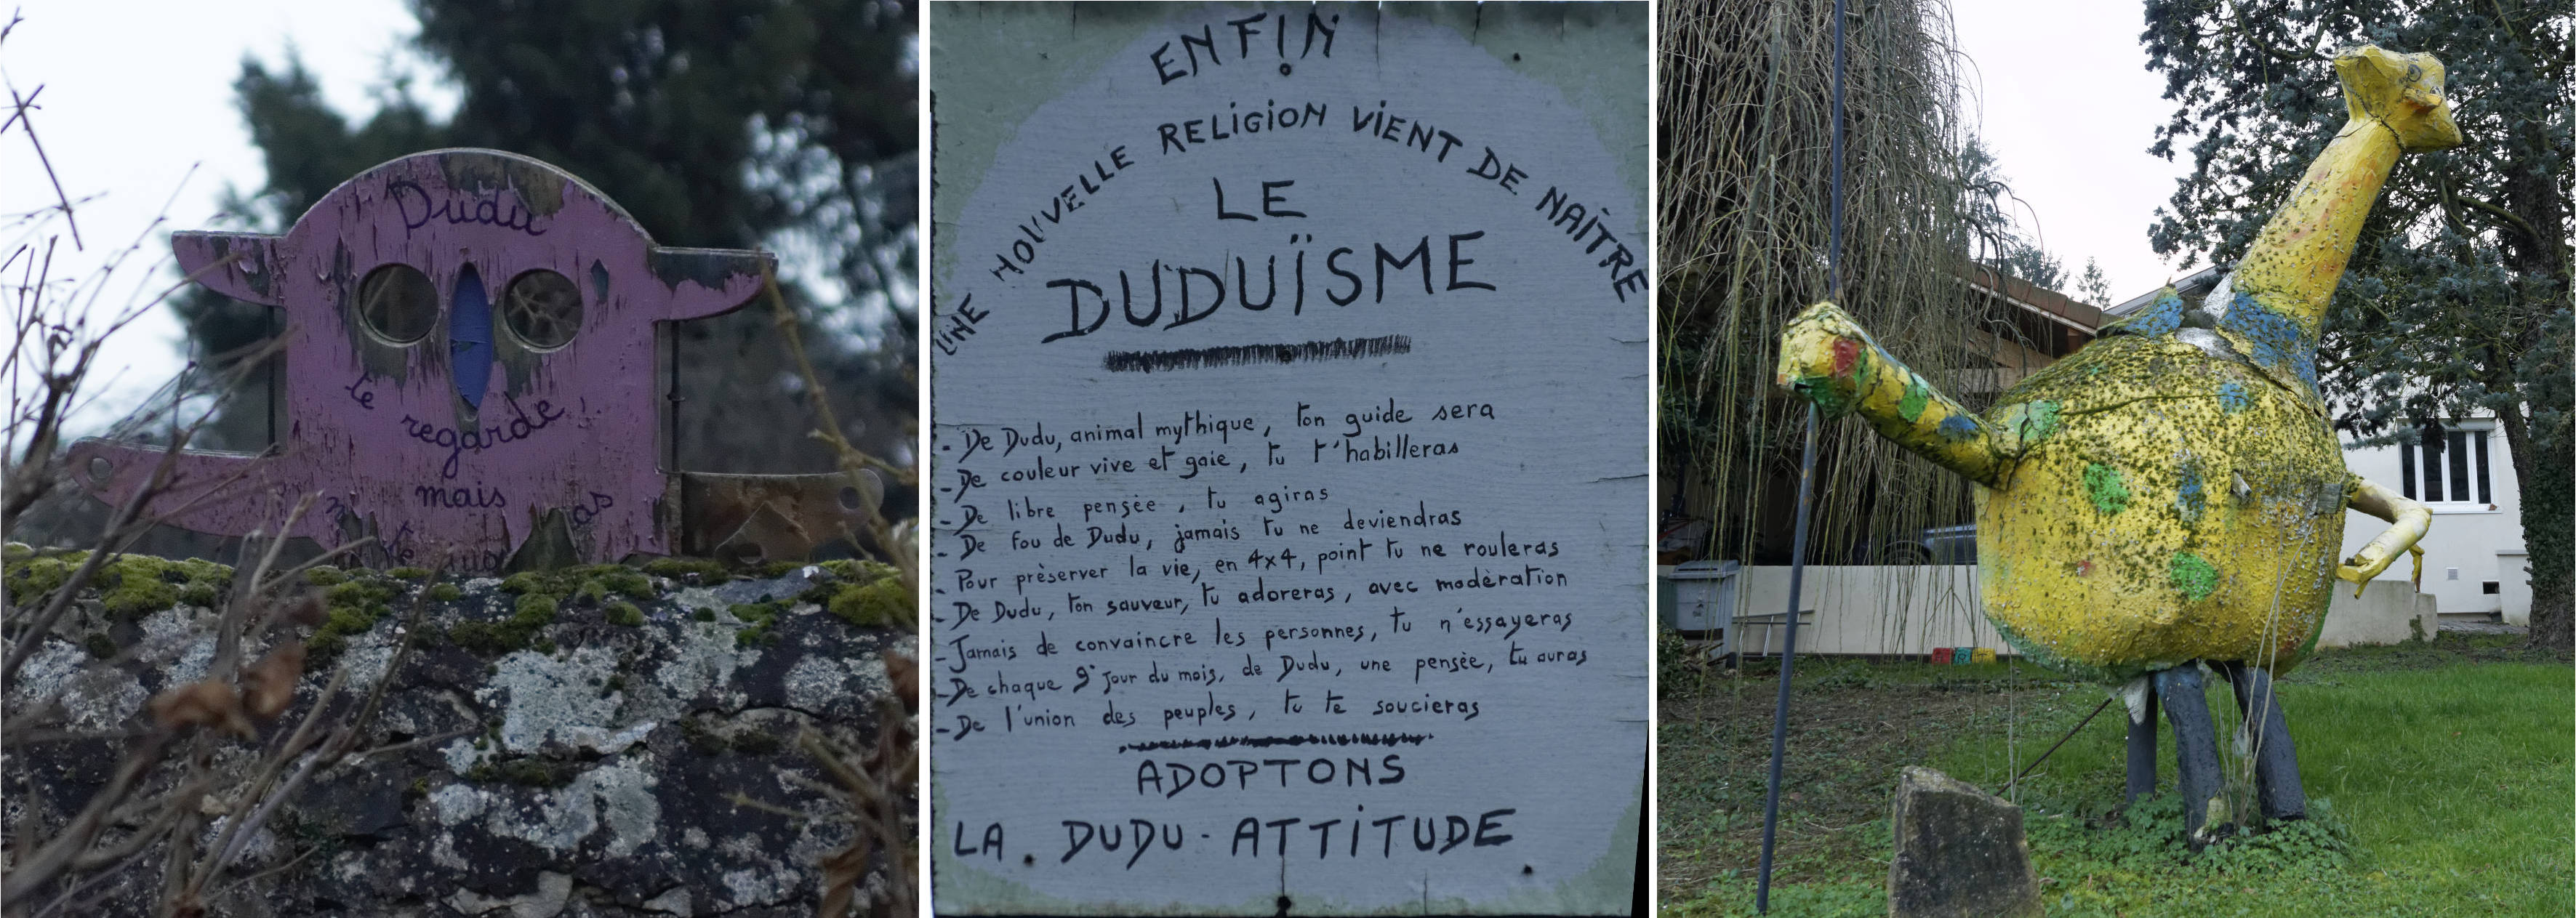 Dudu
te regarde
mais
ENFIN
UNE NOUVELLE RELIGION VIENT DE NAÎTRE
LE
DUDUÏSME
- De Dudu, animal mythique, ton guide sera
- De couleur vive et gaie, tu t'habilleras
- De libre pensée, tu agiras
- De fou de Dudu, jamais tu ne deviendras
- Pour préserver la vie, en 4x4, point tu ne rouleras
- De Dudu, ton sauveur, tu adoreras, avec modération
- Jamais de convaincre les personnes, tu n'essayeras
- De chaque 9e jour du mois, de Dudu, une pensée, tu auras
- De l'union des peuples, tu te soucieras
ADOPTONS
LA DUDU-ATTITUDE